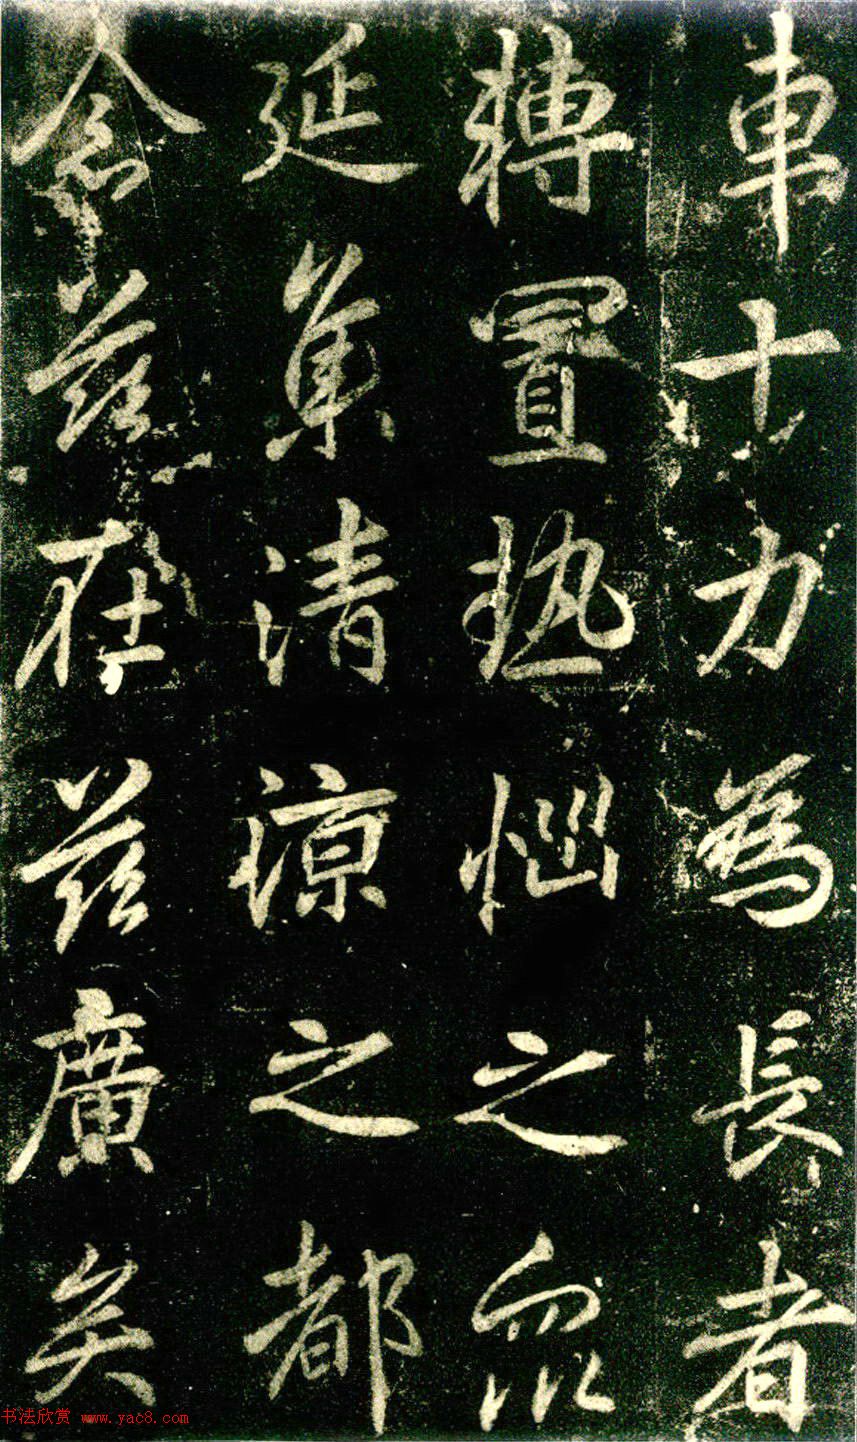 車十力為長者
轉置熱惱之眾
延集清涼之都
念茲在茲廣矣
书法欣赏 www.yac8.com